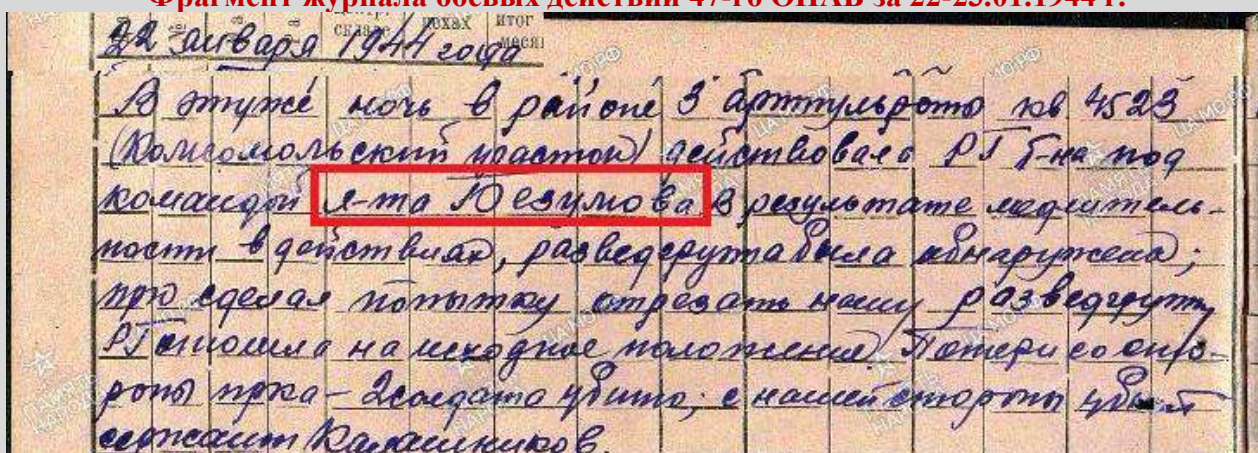 Фрагмент журнала боевых действий 47-го ОПАБ за 22-23.01.1944 г.
складе
похах
итог
22 января 1944 года
В туже ночь в районе 3 арттульроты кв 4523
(Комсомольский участок) действовала РГ б-на под
командой л-та Юезумова. В результате медлитель-
ности в действиях, разведгруппа была обнаружена;
пр-к сделал попытку отрезать нашу разведгруппу
РГ отошла на исходное положение. Потери со сто-
роны пр-ка - 2 солдата убито; с нашей стороны убит
сержант Калашников.